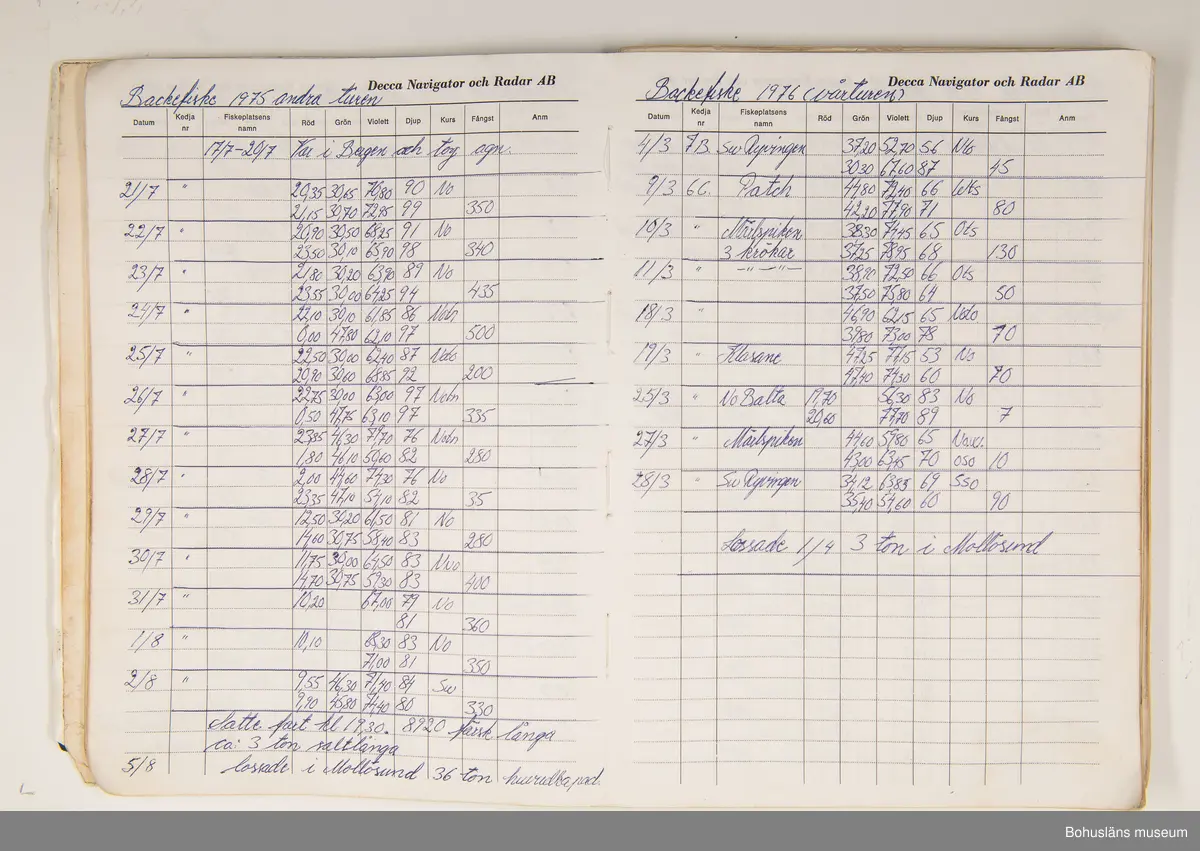 Decca Navigator och Radar AB
Backefiske 1975 andra turen
Datum Kedja nr Fiskeplatsens namn Röd Grön Violett Djup Kurs Fångst Anm
17/7-20/7 Var i Bergen och tog agn.
21/7 " 20,35 30,65 70,80 90 No
21,15 30,70 72,75 99 350
22/7 " 20,90 30,50 68,25 91 No
23,50 30,10 65,90 98 340
23/7 " 21,80 30,20 63,90 89 No
23,55 30,00 64,25 94 435
24/7 " 22,10 30,10 61,85 86
0,00 47,80 62,10 97 500
25/7 " 22,50 30,00 62,40 87
20,90 30,60 68,85 92 200
26/7 " 22,75 30,00 63,00 97
0,50 47,75 63,10 97 335
27/7 " 23,85 46,30 79,70 76
1,80 46,10 50,60 82 280
28/7 " 2,00 44,60 74,30 76 No
23,35 47,10 54,10 82 35
29/7 " 12,50 30,20 61,50 81 No
14,60 30,75 58,40 83 280
30/7 " 11,75 30,00 64,50 83 Nno
14,70 30,75 59,30 83 400
31/7 " 10,20 67,00 79 No
81 360
1/8 " 10,10 83 No
71,00 81 350
2/8 " 9,55 46,30 71,40 84 Sw
9,90 45,80 74,40 80 330
Satte fart kl 19,30. 8920 färsk långa
ca: 3 ton saltlånga
5/8 lossade i Mollösund 36 ton
Decca Navigator och Radar AB
Backefiske 1976 (vårturen)
Datum Kedja nr Fiskeplatsens namn Röd Grön Violett Djup Kurs Fångst Anm
4/3 7B. Sw Ryvingen 37,20 52,70 56
30,30 67,60 87 45
9/3 6C. Patch 44,80 72,40 66
42,20 77,90 71 80
10/3 " Märlspiken 38,30 74,45 65 Ots
3 krökar 37,25 78,95 68 130
11/3 " -"-"- 38,90 72,50 66 Ots
37,50 75,80 64 50
18/3 " 46,90 62,15 65
39,80 73,00 78 70
19/3 " Klasane 47,25 77,15 53 No
47,40 74,30 60 70
25/3 " No Balta 19,70 56,30 83 No
20,60 77,70 89 7
27/3 " Märlspiken 44,60 59,80 65
43,00 63,45 70 oso 10
28/3 " Sw Ryvingen 34,12 63,85 69 SSO
35,40 54,60 60 90
Lossade 1/4 3 ton i Mollösund
Bohusläns museum